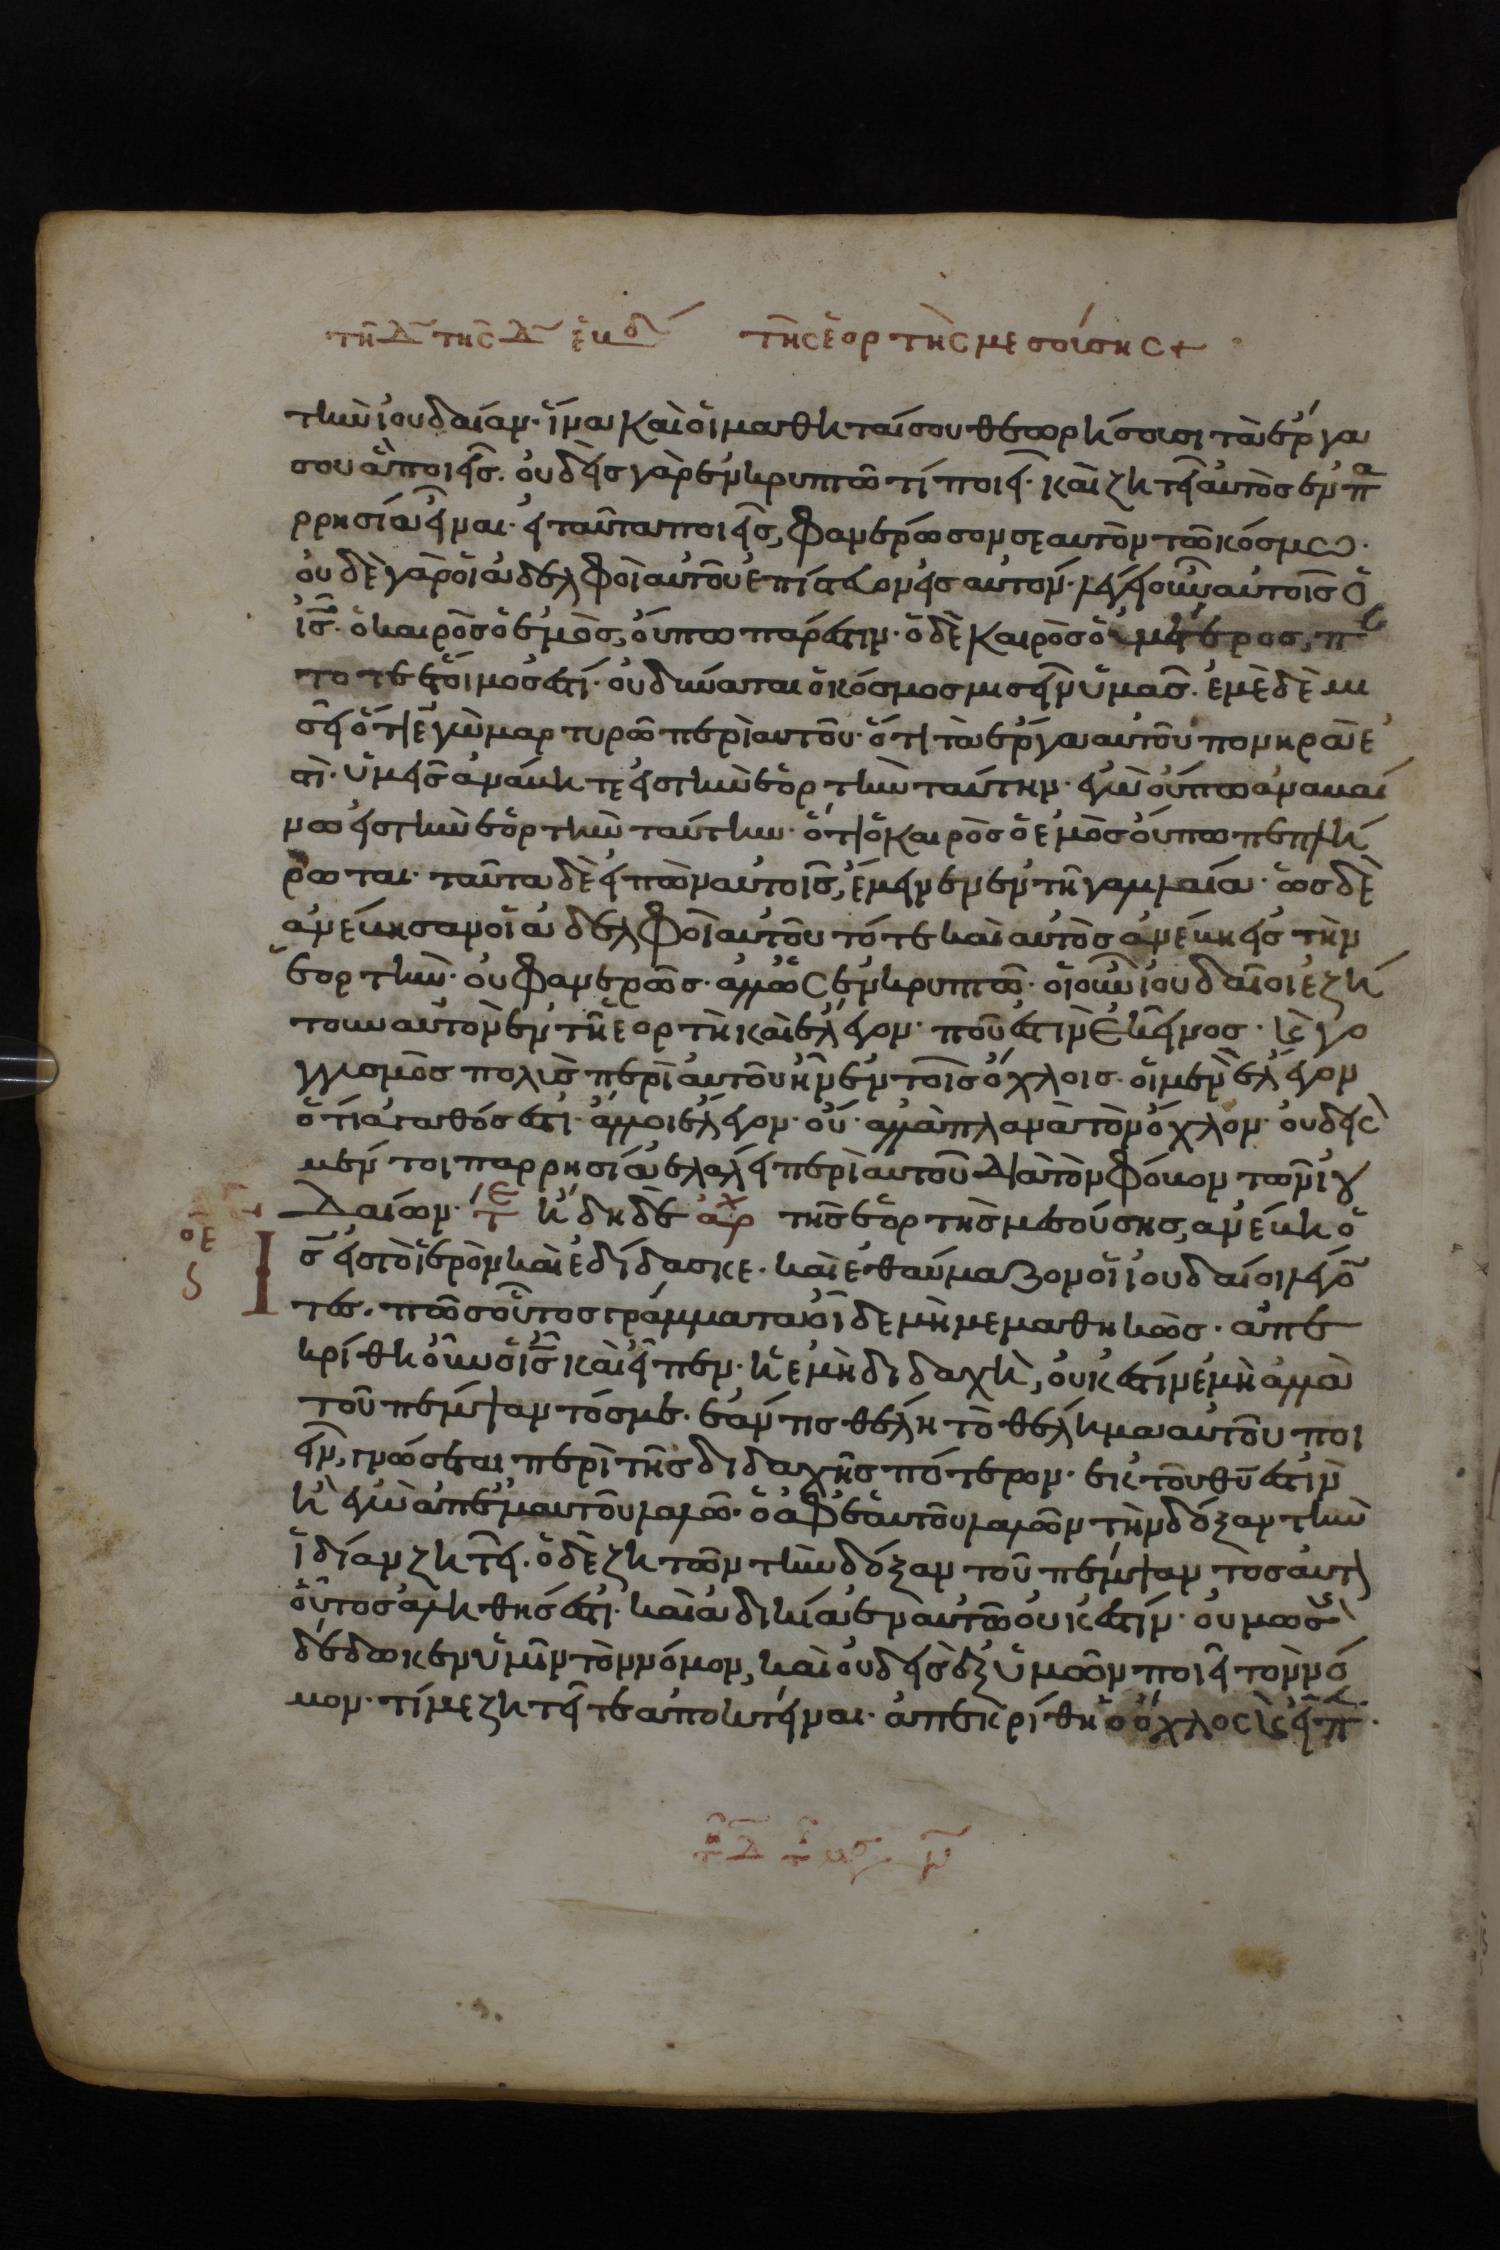 τῆ Δ τῆς Δ ἑβδ τῆς ἑορτῆς μεσούσης +
τὴν ἰουδαίαν· ἵνα καὶ οἱ μαθηταί σου θεωρήσωσι τὰ ἔργα
σου ἃ ποιεῖς. οὐδεὶς γὰρ ἐν κρυπτῶ τί ποιεῖ· καὶ ζητεῖ αὐτὸς ἐν πα
ρρησία εἶναι· εἰ ταῦτα ποιεῖς, φανέρωσον σεαυτὸν τῶ κόσμω·
οὐδὲ γὰρ οἱ ἀδελφοὶ αὐτοῦ ἐπίστευον εἰς αὐτόν· λέγει οὖν αὐτοῖς ὁ
ις· ὁ καιρὸς ὁ ἐμὸς, οὔπω πάρεστιν· ὁ δὲ καιρὸς ὁ ὑμέτερος, πάν
τοτε ἕτοιμός ἐστι· οὐ δύναται ὁ κόσμος μισεῖν ὑμᾶς· ἐμὲ δὲ μι
σεῖ ὅτι ἐγὼ μαρτυρῶ περὶ αὐτοῦ· ὅτι τὰ ἔργα αὐτοῦ πονηρά ἐ
στι· ὑμεῖς ἀνάβητε εἰς τὴν ἑορτὴν ταύτην· ἐγὼ οὔπω ἀναβαί
νω εἰς τὴν ἑορτὴν ταύτην· ὅτι ὁ καιρὸς ὁ ἐμὸς οὔπω πεπλή
ρωται· ταῦτα δὲ εἰπὼν αὐτοῖς, ἔμεινεν ἐν τῆ γαλιλαία· ὡς δὲ
ἀνέβησαν οἱ ἀδελφοὶ αὐτοῦ τότε καὶ αὐτὸς ἀνέβη εἰς τὴν
ἑορτήν· οὐ φανερῶς· ἀλλ' ὡς ἐν κρυπτῶ· οἱ οὖν ἰουδαῖοι ἐζή
τουν αὐτὸν ἐν τῆ ἑορτῆ καὶ ἔλεγον· ποῦ ἐστιν ἐκεῖνος· κ γο
γγυσμὸς πολὺς περὶ αὐτοῦ ἦν ἐν τοῖς ὄχλοις· οἱ μὲν ἔλεγον
ὅτι ἀγαθός ἐστι· ἄλλοι ἔλεγον· οὔ· ἀλλὰ πλανᾶ τὸν ὄχλον· οὐδεὶς
μέν τοι παρρησία ἐλάλει περὶ αὐτοῦ διὰ τὸν φόβον τῶν ἰου
δαίων· τε ἤδη δὲ αρχ τῆς ἑορτῆς μεσούσης, ἀνέβη ὁ
ις εἰς τὸ ἱερὸν καὶ ἐδίδασκε· καὶ ἐθαύμαζον οἱ ἰουδαίοι λέγον
τες· πῶς οὗτος γράμματα οἶδε μὴ μεμαθηκώς· ἀπε
κρίθη οὖν ὁ ις καὶ εἶπεν· ἡ ἐμὴ διδαχὴ, οὐκ ἔστιν ἐμὴ ἀλλὰ
τοῦ πέμψαντός με· ἐάν τις θέλη τὸ θέλημα αὐτοῦ ποι
εῖν, γνώσεται περὶ τῆς διδαχῆς πότερον· ἐκ τοῦ θυ ἐστιν
ἢ ἐγὼ ἀπ' ἐμαυτοῦ λαλῶ· ὁ ἀφ' ἑαυτοῦ λαλῶν τὴν δόξαν τὴν
ἰδίαν ζητεῖ· ὁ δὲ ζητῶν τὴν δόξαν τοῦ πέμψαντος αὐτὸν
οὗτος ἀληθής ἐστι· καὶ ἀδικία ἐν αὐτῶ οὐκ ἔστιν· οὐ μωσῆς
δέδωκεν ὑμῖν τὸν νόμον, καὶ οὐδεὶς ἐξ ὑμῶν ποιεῖ τὸν νό
μον· τί με ζητεῖτε ἀποκτεῖναι· ἀπεκρίθη ὁ ὄχλος κ εἶπ·